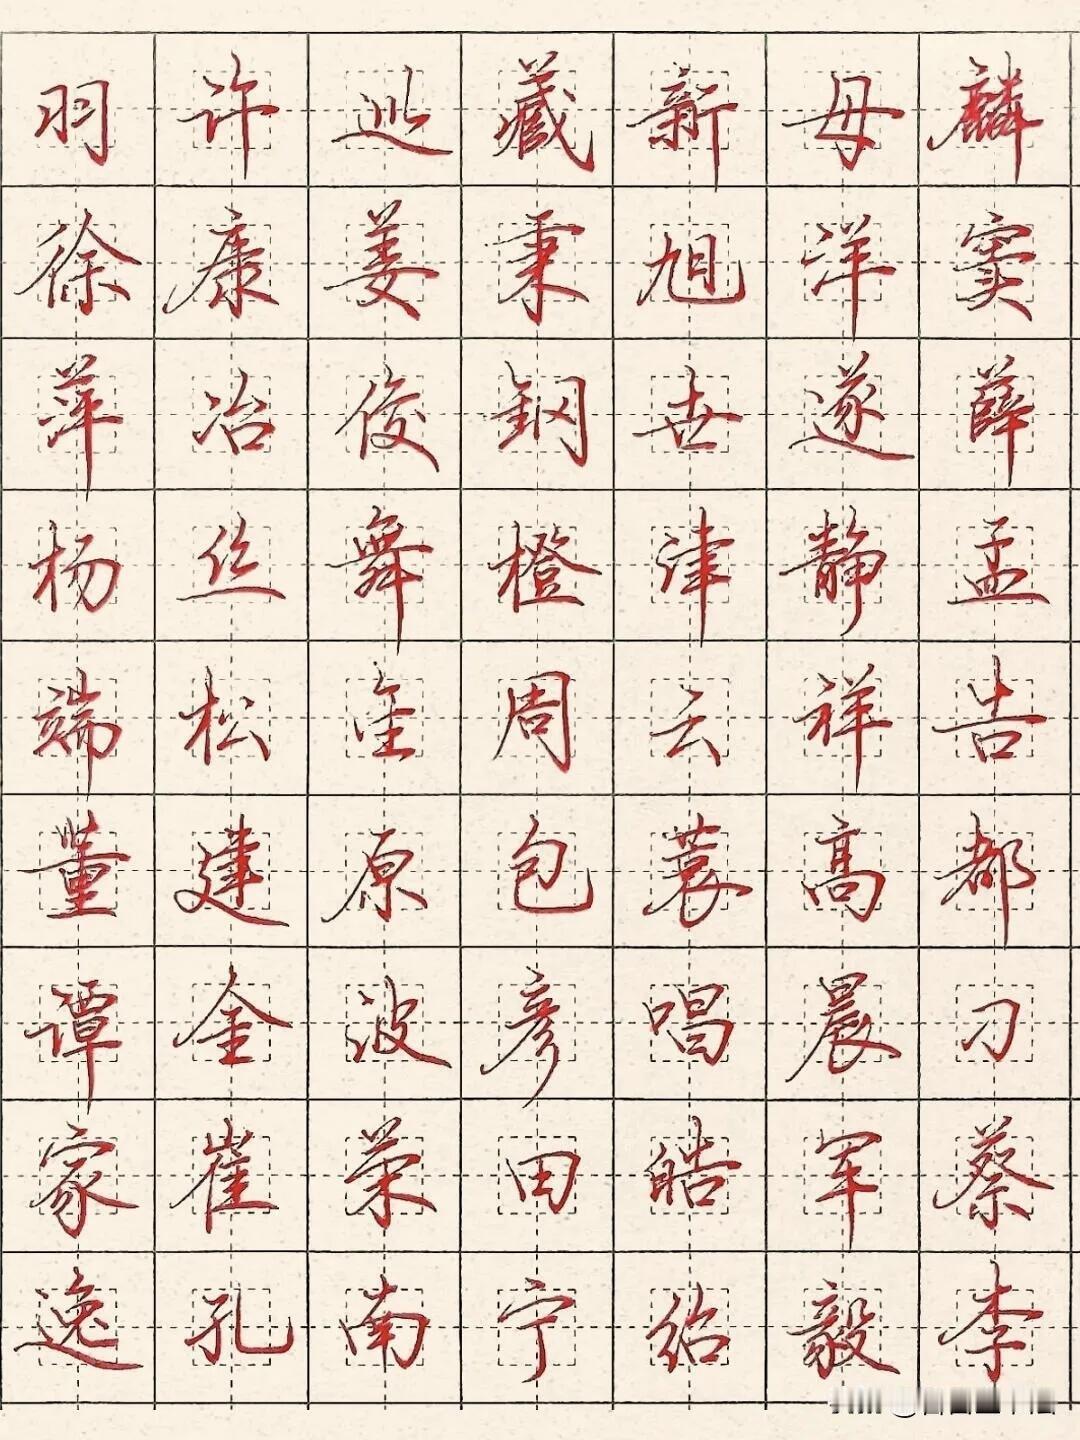 羽许巡藏新母麟
徐康姜秉旭洋窦
萍冶俊钢世遂薛
杨丝舞橙津静孟
端松周云祥吉
董建原包高都
谭金波彦唱晨刁
家崔荣田皓军蔡
逸孔南宁绍毅李